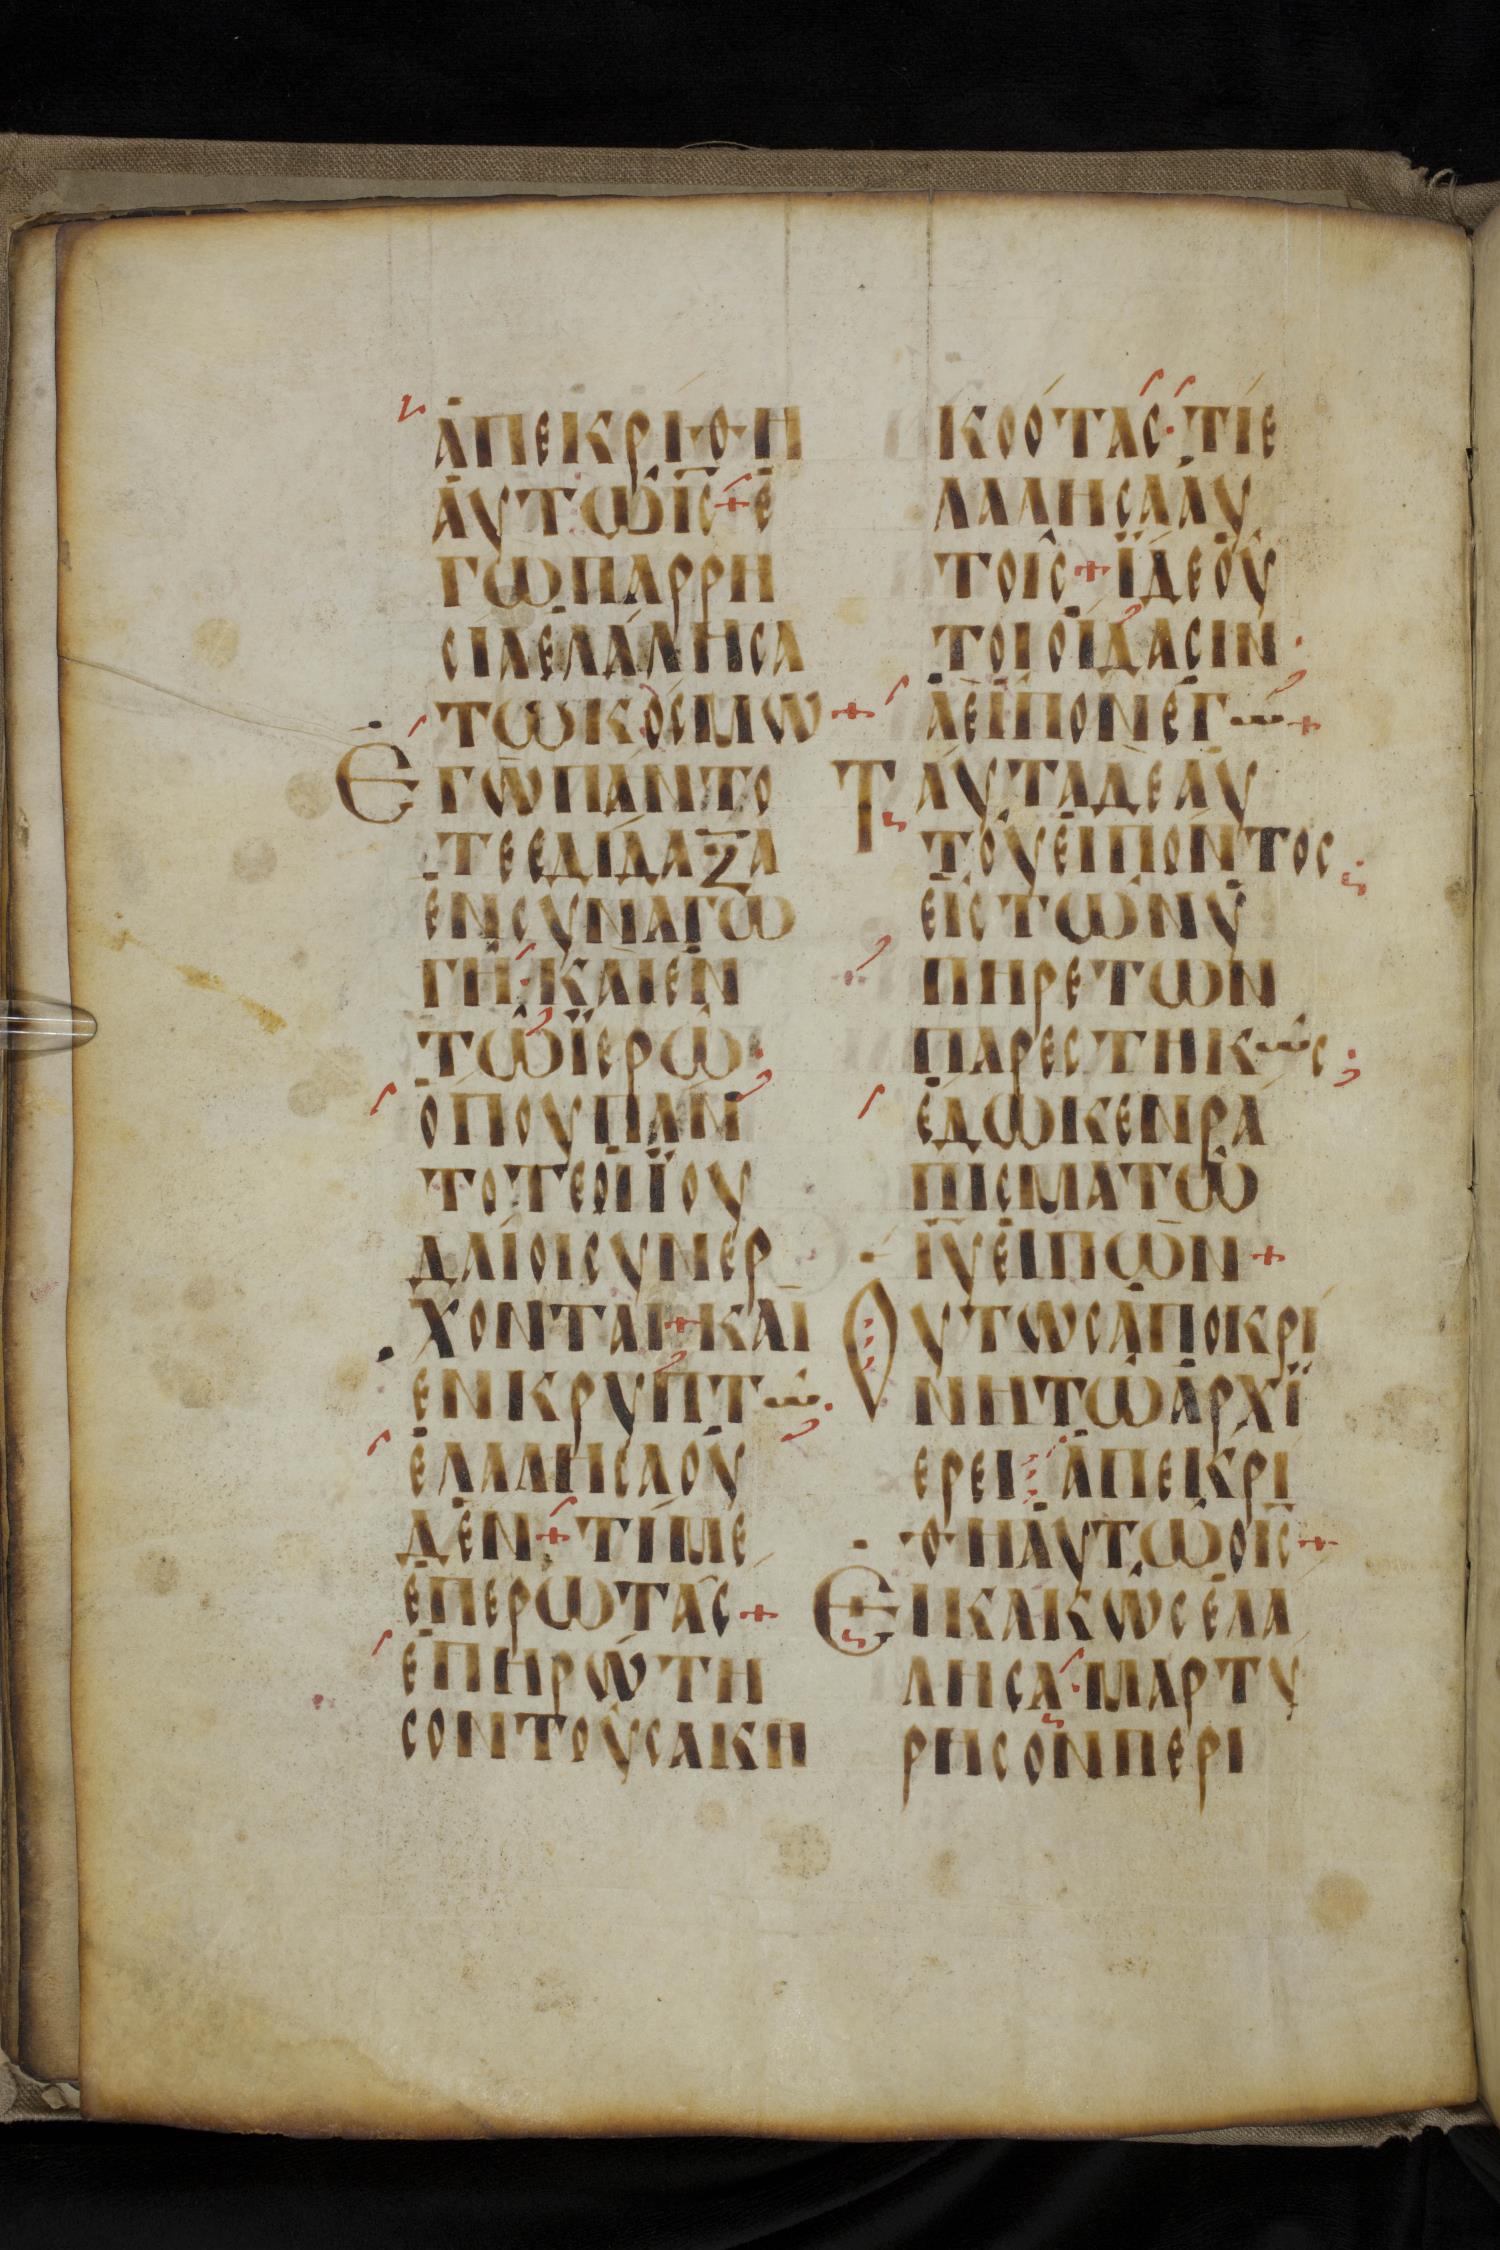 ἀπεκρίθη
ἀυτῶ ις + ἐ
γω παρρη
σία ἐλάλησα
τω κόσμω +
Ἐγὼ πάντο
τε εδίδαξα
ἐν συναγω
γῆ· καὶ ἐν
τῶ ϊερῶ·
ὅπου πάν
τοτε οἱ ϊου
δαίοι συνερ
χονται + καὶ
ἐν κρυπτῶ·
ἐλάλησα οὐ
δέν + τί με
ἐπερωτᾶς +
ἐπηρώτη
σον τοὺς ακη
κοότας· τί ε
λαλησα ἀυ
τοῖς + ϊδε οὗ
τοι οἴδασιν·
ἃ εἶπον ἐγω +
Ταύτα δὲ αυ
τοῦ ἐιπόντος
εἷς τῶν ὑ
πηρετων
παρεστηκὼς·
ἔδωκεν ρα
πισμα τῶ
ιυ ἐιπὼν +
Ουτως ἀποκρί
νη τῶ ἀρχϊ
ερει· ἀπεκρί
θη ἀυτῶ ο ις +
Ἐι κακῶς ἐλά
λησα· μαρτύ
ρησον περι